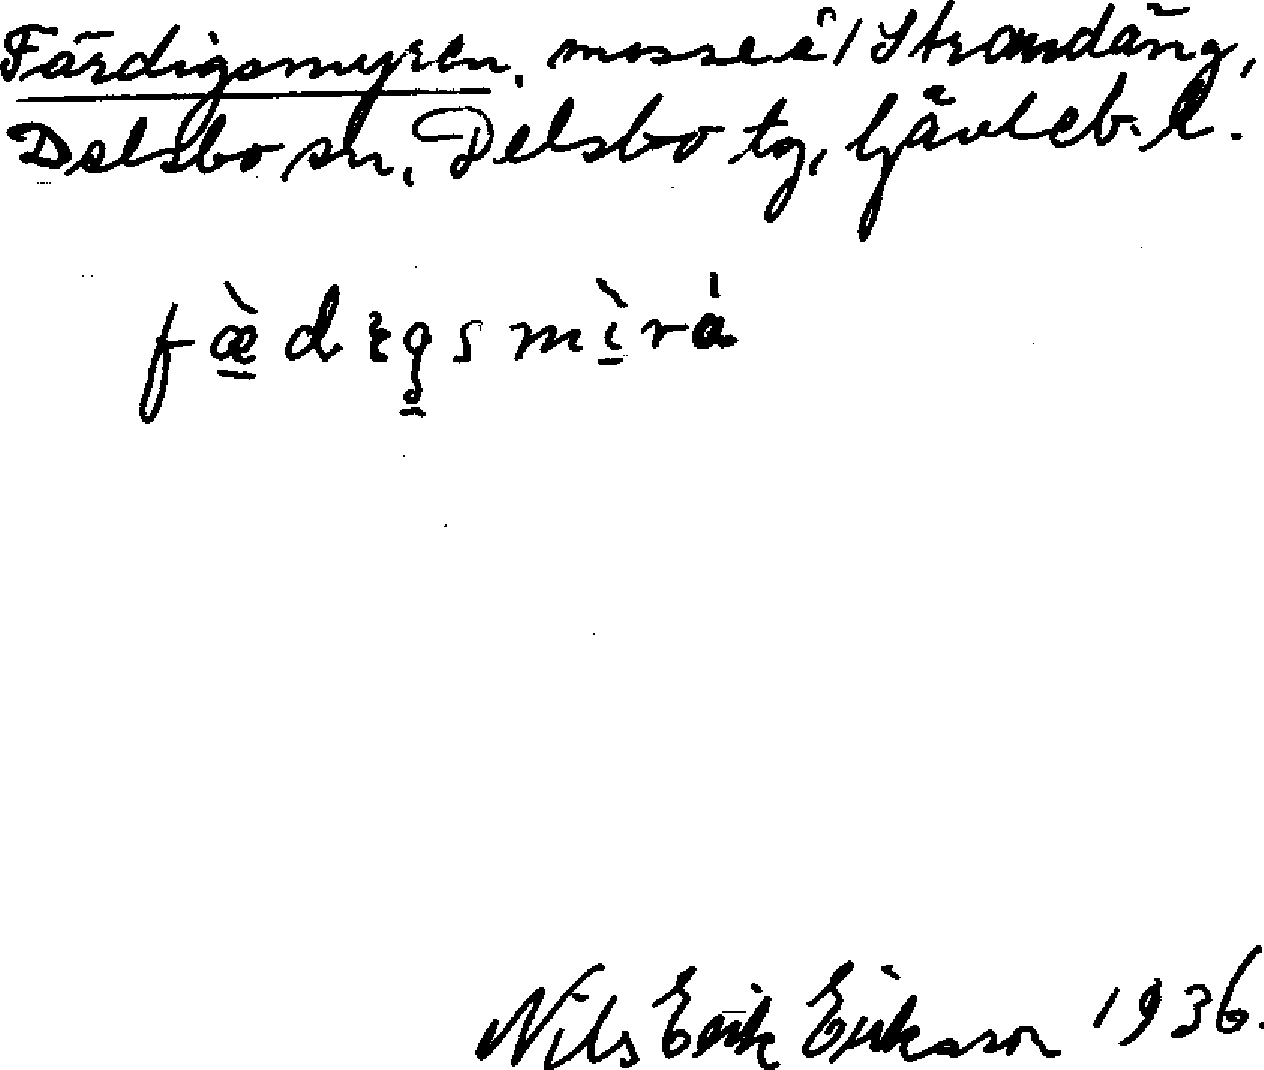 Färdigsmyren, mosse å / Strandäng,
Delsbo sn, Delsbo tg, Gävleb. l.
fæ̀dɩgsmìrá
Nils Erik Eriksson 1936.